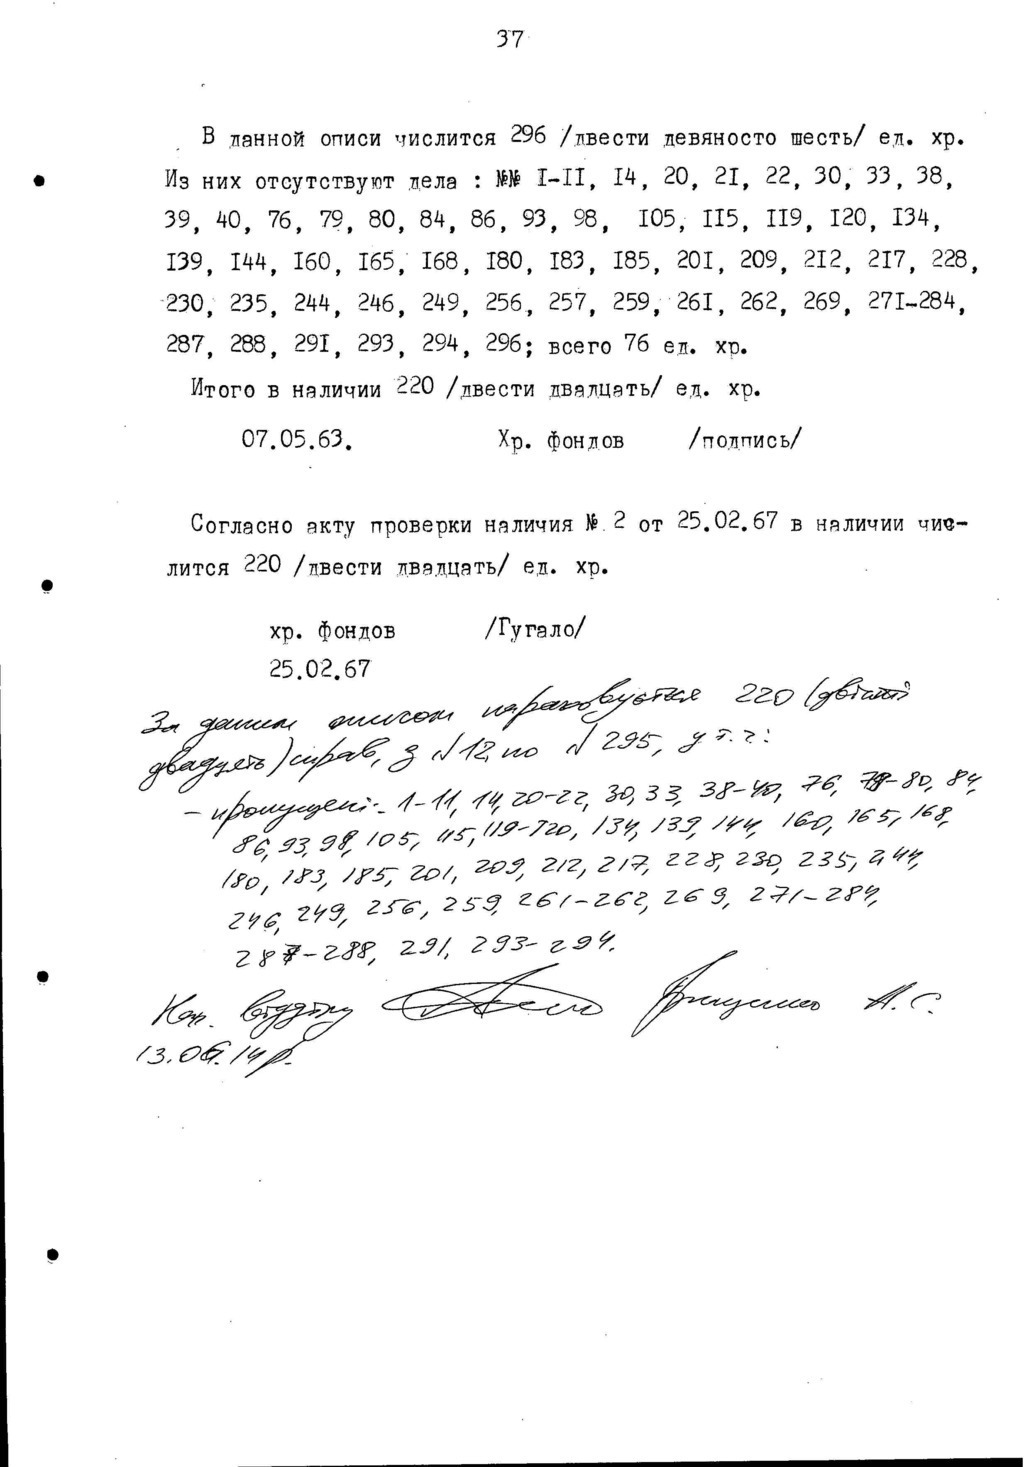 37
В данной описи числится 296 /двести девяносто шесть/ ед. хр.
Из них отсутствуют дела : №№ I-II, I4, 20, 2I, 22, 30, 33, 38,
39, 40, 76, 79, 80, 84, 86, 93, 98, I05, II5, II9, I20, I34,
I39, I44, I60, I65, I68, I80, I83, I85, 20I, 209, 2I2, 2I7, 228,
230, 235, 244, 246, 249, 256, 257, 259, 26I, 262, 269, 27I-284,
287, 288, 29I, 293, 294, 296; всего 76 ед. хр.
Итого в наличии 220 /двести двадцать/ ед. хр.
07.05.63. Хр. фондов /подпись/
Согласно акту проверки наличия № 2 от 25.02.67 в наличии чис-
лится 220 /двести двадцать/ ед. хр.
хр. фондов /Гугало/
25.02.67
За даним описом нараховується 220 (двісті
двадцять) справ, з № 12 по № 295, у т.ч:
- пропущені: 1-11, 14, 20-22, 30, 33, 38-40, 76, 79-80, 84,
86, 93, 98, 105, 115, 119-120, 134, 139, 144, 160, 165, 168,
180, 183, 185, 201, 209, 212, 217, 228, 230, 235, 244,
246, 249, 256, 259, 261-262, 269, 271-284,
287-288, 291, 293-294.
Нач. відділу А. С.
13.06.14 р.